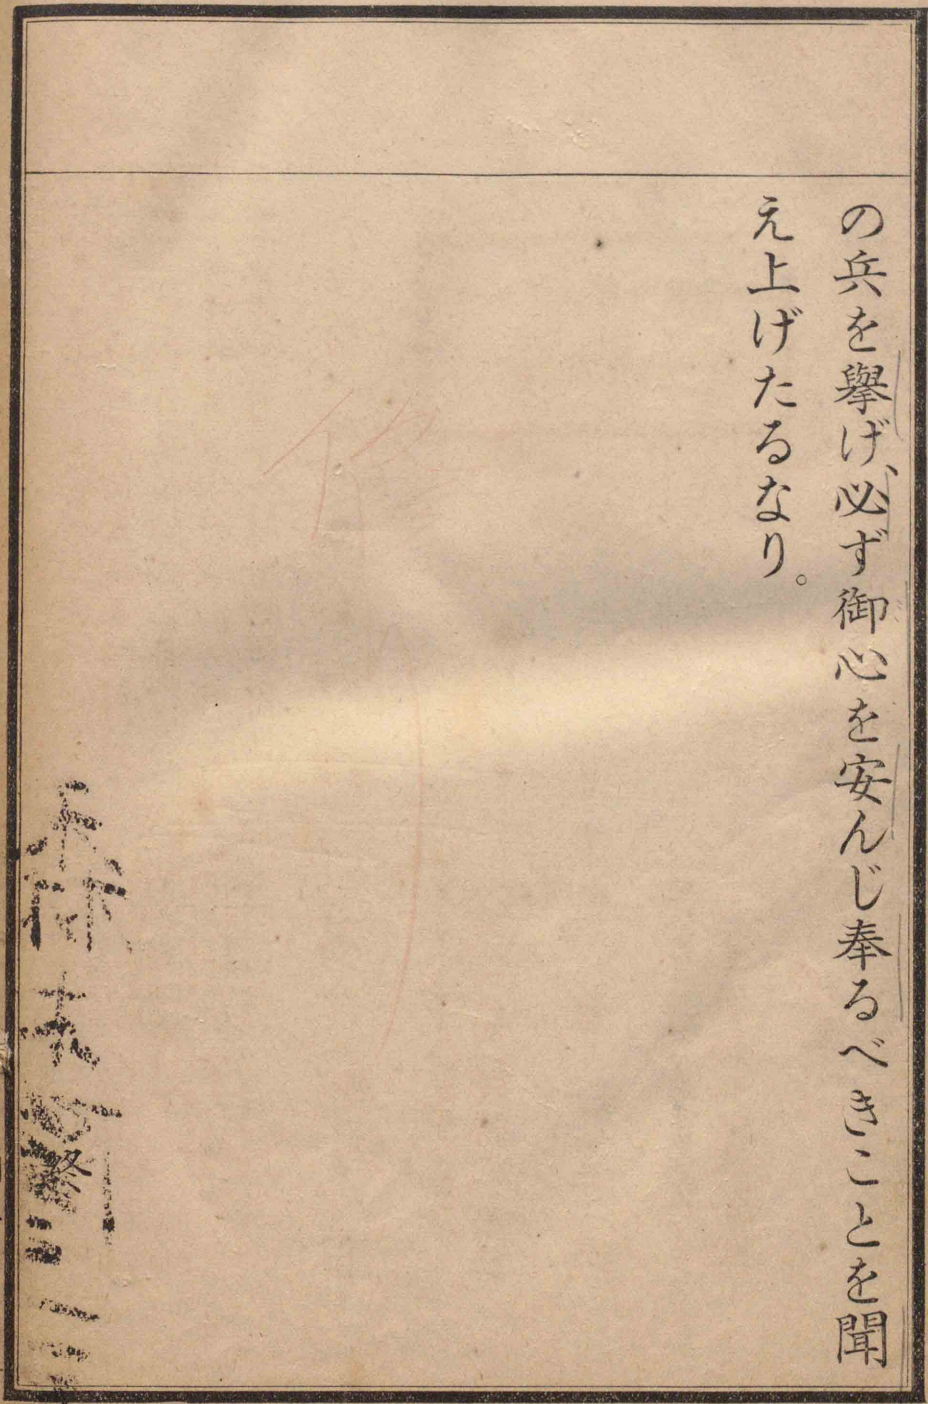 の兵を擧げ、必ず御心を安んじ奉るべきことを聞
え上げたるなり。
終